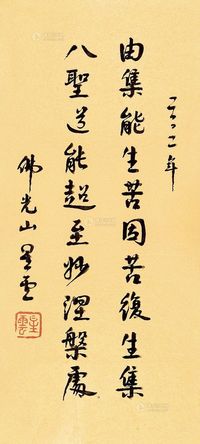 二〇〇二年
由集能生苦因苦復生集
八聖道能超至妙涅槃處
佛光山星雲
星雲